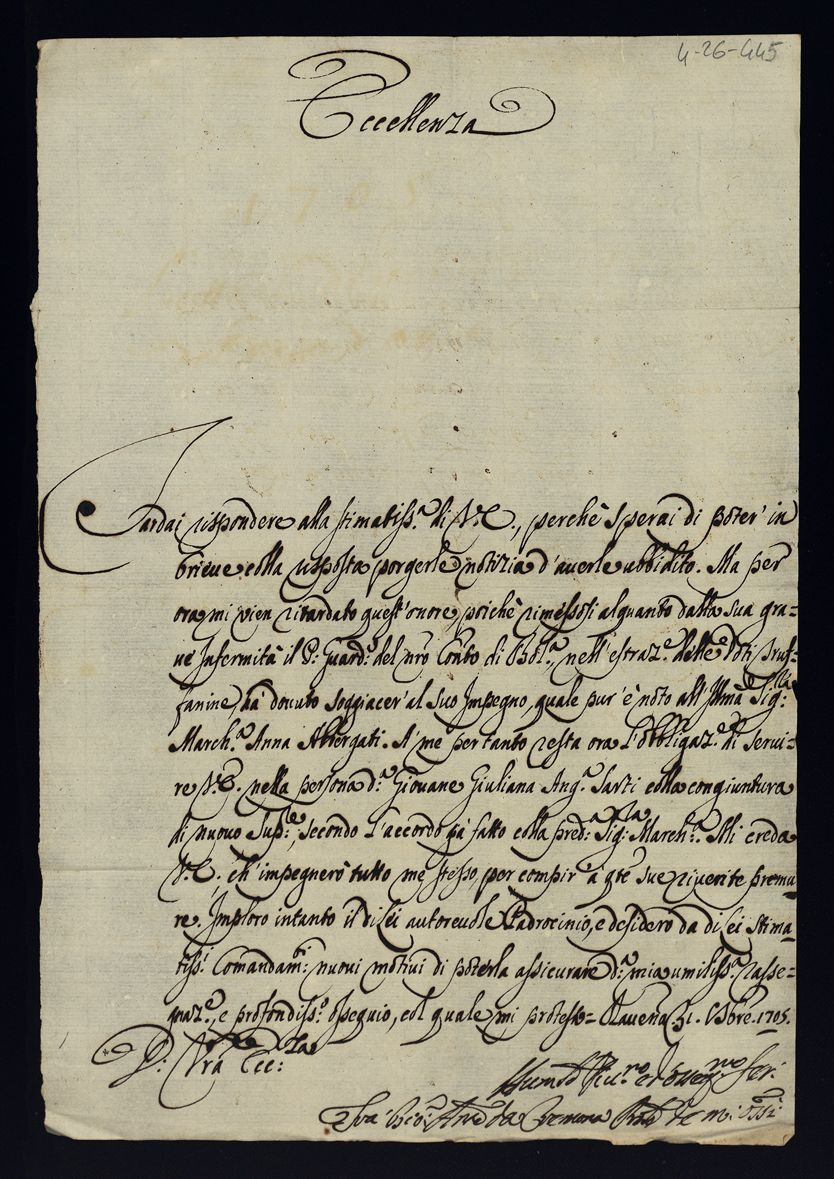 4-26-445
Eccellenza
Tardai rispondere alla stimatiss.ª di V.E., perchè sperai di poter' in
brieve colla risposta porgerle notizia d'averle ubbidito. Ma per
ora mi vien ritardato quest'onore, poichè rimessosi alquanto dalla sua gra=
ve Infermità il P. Guard.º del nrõ Conto di Bol.ª, nell'estraz.e delle Doti
fanine, hà dovuto soggiacer' al suo Impegno, quale pur' è noto all' Illma Sig.ra
March.ª Anna Albergati. A' me per tanto resta ora l'obbligaz.e di servi=
re V.E. nella persona d.ª Giovane Giuliana Ang.ª Sarti colla congiuntura
di nuovo Sup.e, secondo l'accordo già fatto colla pred.ª Sig.ra March.ª. Mi creda
V.E., ch' impegnerò tutto me stesso, per compir' a qte sue riverite premu=
re. Imploro intanto il di Lei autorevole Padrocinio, e desidero da di Lei stima=
tiss.i Comandam.ti nuovi motivi di poterla assicurare d.ª mia umiliss.ª rasse=
gnaz.e, e profondiss.º ossequio, col quale mi protesto= Ravena 31. 8bre. 1705.
D. Vrã Ecc:za
Humo Divmo et Obblmo Ser.
Fra